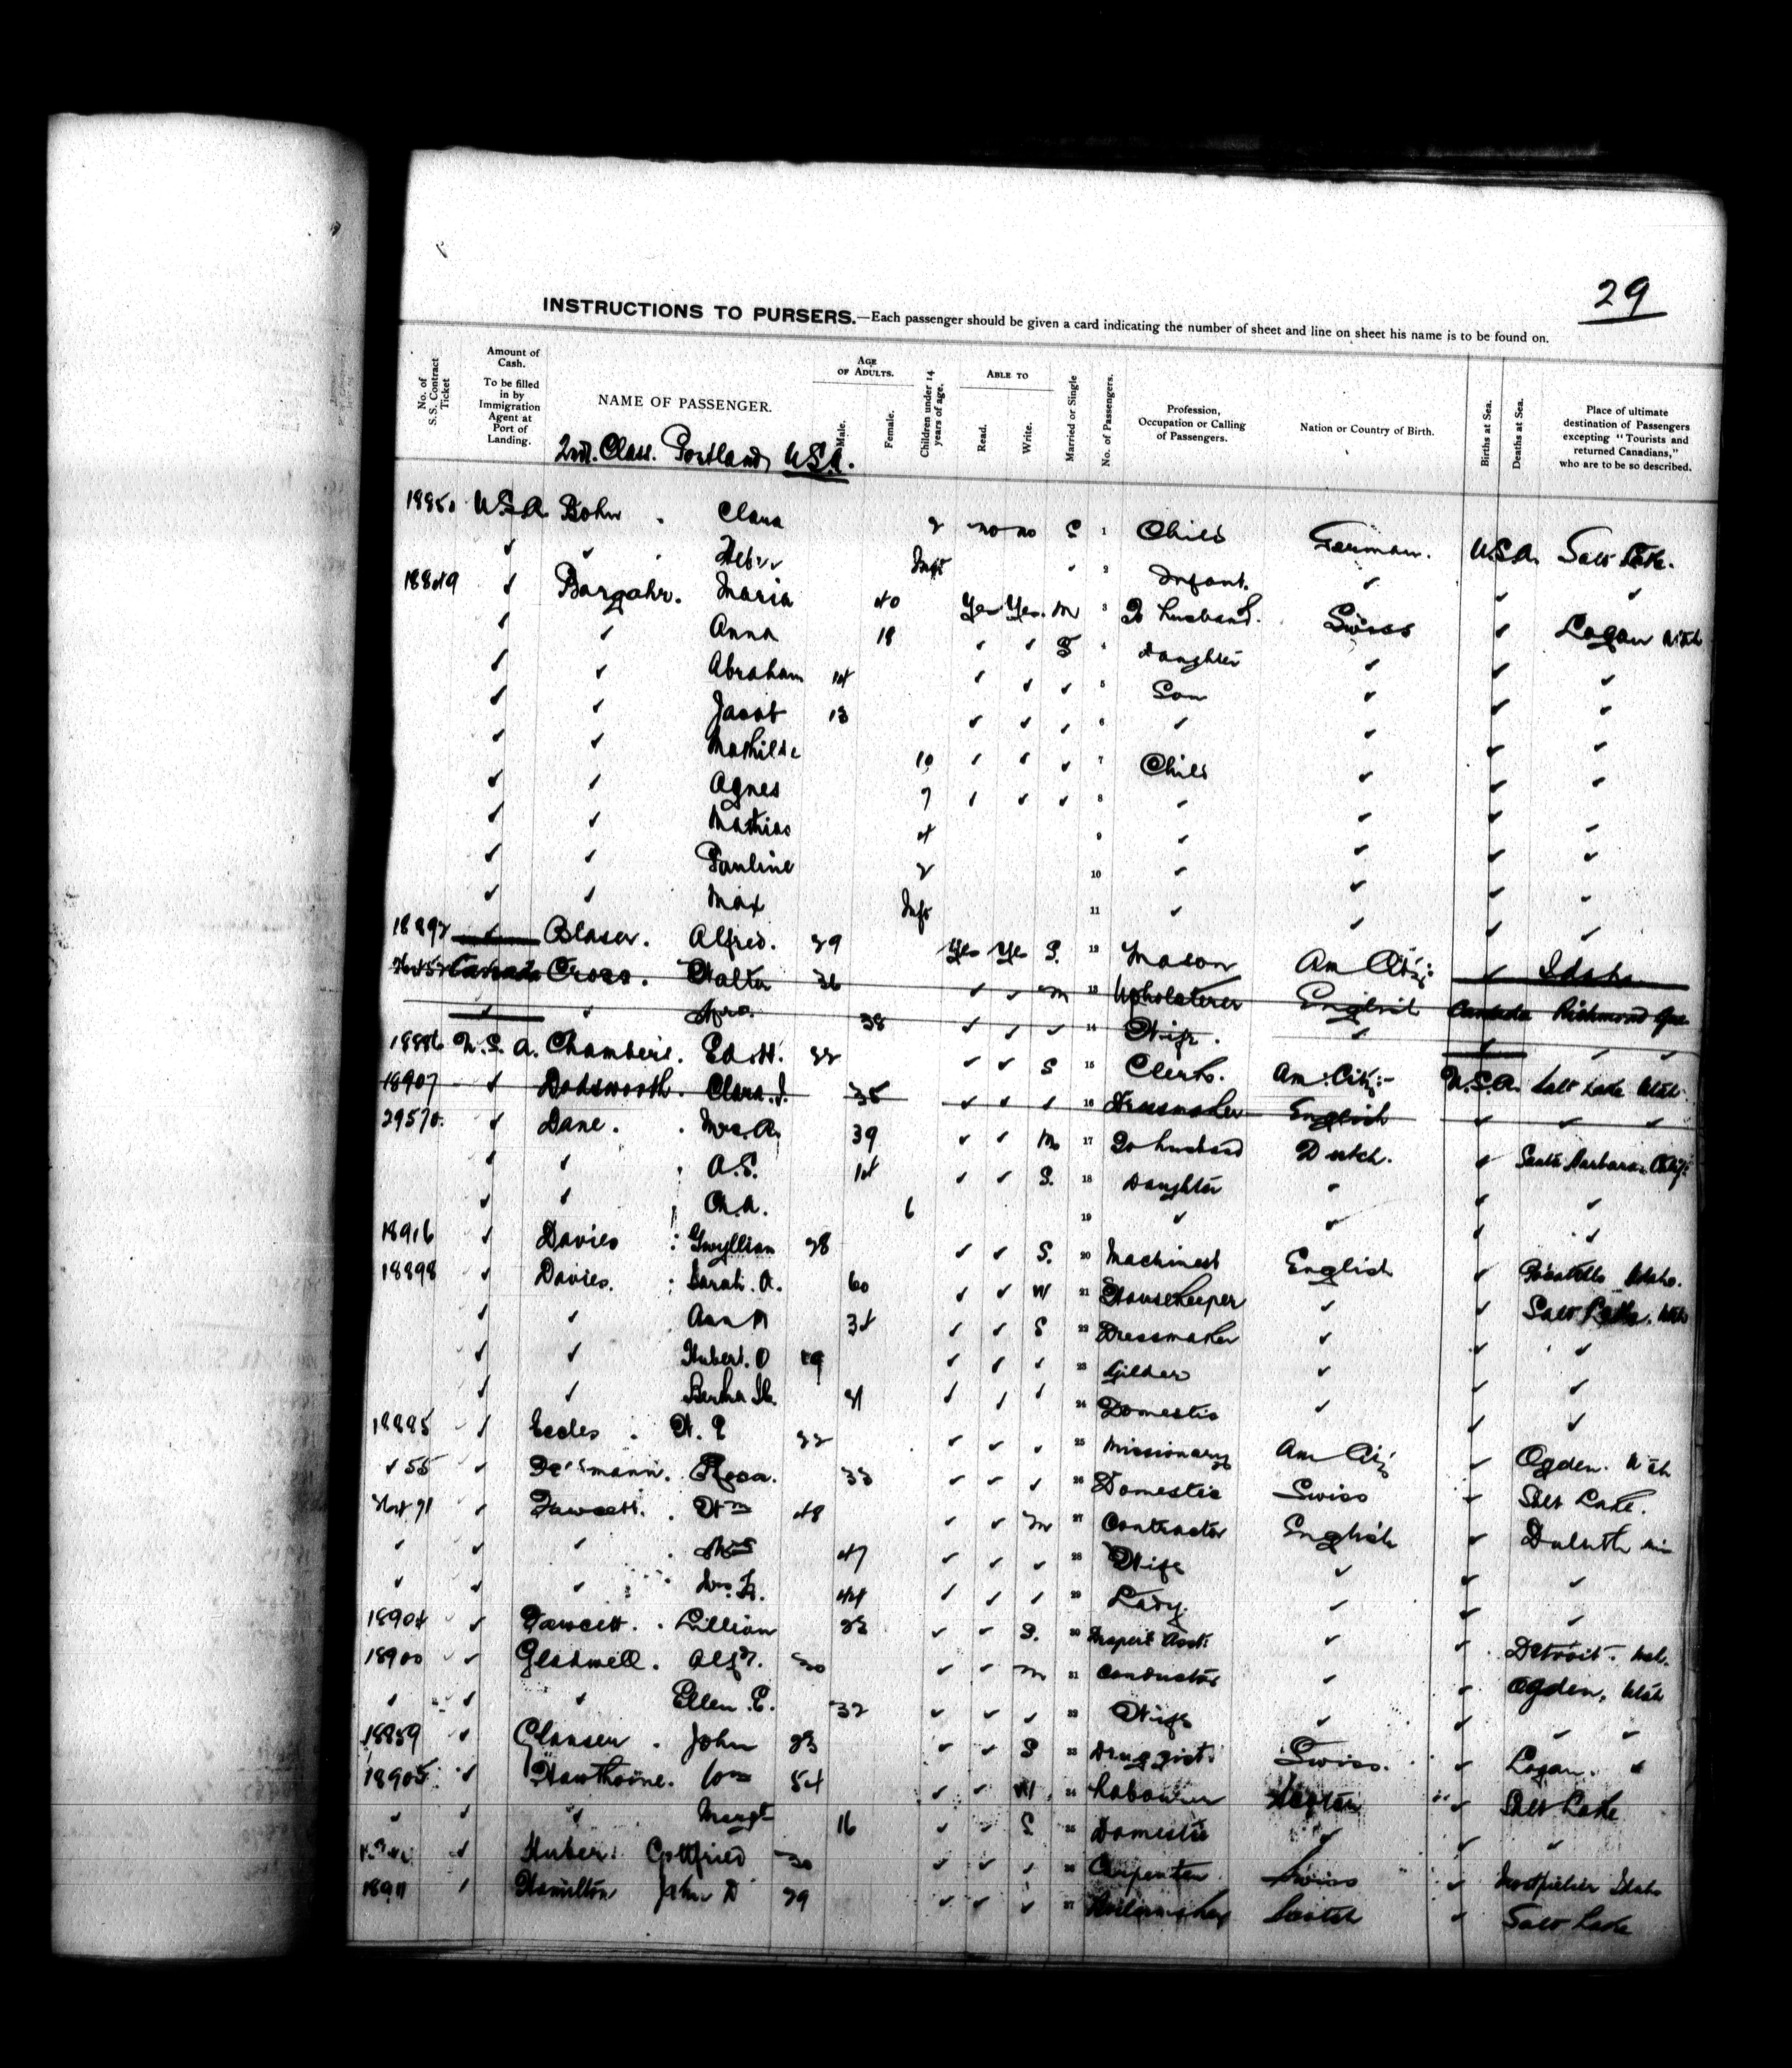 29
INSTRUCTIONS TO PURSERS.—Each passenger should be given a card indicating the number of sheet and line on sheet his name is to be found on.
No. of S.S. Contract Ticket
Amount of Cash. To be filled in by Immigration Agent at Port of Landing.
NAME OF PASSENGER.
AGE OF ADULTS.
Male.
Female.
Children under 14 years of age.
ABLE TO
Read.
Write.
Married or Single
No. of Passengers.
Profession, Occupation or Calling of Passengers.
Nation or Country of Birth.
Births at Sea.
Deaths at Sea.
Place of ultimate destination of Passengers excepting "Tourists and returned Canadians," who are to be so described.
2nd. Class. Portland, USA.
18850 U.S.A. Bohn . Clara 2 no no S 1 Child German. U.S.A. Salt Lake.
✓ ✓ Inft ✓ 2 Infant. ✓ ✓ ✓
18849 ✓ Bargahr. Maria 40 Yes Yes. M 3 To husband. Swiss ✓ Logan Utah
✓ ✓ Anna 18 ✓ ✓ S 4 Daughter ✓ ✓ ✓
✓ ✓ Abraham 14 ✓ ✓ ✓ 5 Son ✓ ✓ ✓
✓ ✓ Jacob 13 ✓ ✓ ✓ 6 ✓ ✓ ✓ ✓
✓ ✓ Mathilde 10 ✓ ✓ ✓ 7 Child ✓ ✓ ✓
✓ ✓ Agnes 7 ✓ ✓ ✓ 8 ✓ ✓ ✓ ✓
✓ ✓ Mathias 4 9 ✓ ✓ ✓ ✓
✓ ✓ Pauline 2 10 ✓ ✓ ✓ ✓
✓ ✓ Max Inft 11 ✓ ✓ ✓ ✓
18892 ✓ Blaser. Alfred. 29 Yes Yes S. 12 Mason Am Citz: ✓ Idaho
Canada Cross. Walter 36 ✓ ✓ M 13 Upholsterer English Canada Richmond Que
✓ ✓ Mrs. 38 ✓ ✓ ✓ 14 Wife. ✓ ✓ ✓ ✓
18886 U.S.A. Chambers. Ed. H. 22 ✓ ✓ S 15 Clerk. Am. Citz:- U.S.A. Salt Lake Utah
18907 ✓ Dodsworth. Clara. J. 35 ✓ ✓ ✓ 16 Dressmaker English ✓ ✓ ✓
29570. ✓ Dane. Mrs. A. 39 ✓ ✓ M 17 To husband Dutch. ✓ Santa Barbara.
✓ ✓ A.S. 14 ✓ ✓ S. 18 Daughter ✓ ✓ ✓
✓ ✓ 6 19 ✓ ✓ ✓ ✓
18916 ✓ Davies : Gwyllian 28 ✓ ✓ S. 20 Machinest English ✓ Pocatello Idaho.
18898 ✓ Davies. : Sarah. A. 60 ✓ ✓ W 21 Housekeeper ✓ ✓ Salt Lake. Utah
✓ ✓ Ann M 34 ✓ ✓ S 22 Dressmaker ✓ ✓ ✓
✓ ✓ Hubert. O 19 ✓ ✓ ✓ 23 Gilder ✓ ✓ ✓
✓ ✓ Bertha 21 ✓ ✓ ✓ 24 Domestic ✓ ✓ ✓
18895 ✓ Eccles . W. E 22 ✓ ✓ ✓ 25 Missionary Am Citz ✓ Ogden. Utah
✓ 55 ✓ Rosa. 33 ✓ ✓ ✓ 26 Domestic Swiss ✓ Salt Lake.
✓ Fawcett. . Wm 48 ✓ ✓ M 27 Contractor English ✓ Duluth Min
✓ ✓ ✓ Mrs 47 ✓ ✓ ✓ 28 Wife ✓ ✓ ✓
✓ ✓ ✓ 44 ✓ ✓ ✓ 29 Lady. ✓ ✓ ✓
18904 ✓ Fawcett. . Lillian 23 ✓ ✓ S. 30 Asst: ✓ ✓ Detroit.
18900 ✓ Gladwell. Alfd. 30 ✓ ✓ M 31 Conductor ✓ ✓ Ogden, Utah
✓ ✓ ✓ Ellen. E. 32 ✓ ✓ ✓ 32 Wife ✓ ✓ ✓ ✓
18859 ✓ Glauser . John 23 ✓ ✓ S 33 Druggist. Swiss. ✓ Logan. ✓
18905 ✓ Hawthorne. Wm 54 ✓ ✓ W 34 Labourer ✓ Salt Lake
✓ ✓ ✓ Margt 16 ✓ ✓ S 35 Domestic ✓ ✓ ✓
✓ Huber: Gottfried 30 ✓ ✓ ✓ 36 Carpenter Swiss ✓ Idaho
18911 ✓ Hamilton John D 29 ✓ ✓ ✓ 37 Boilermaker Scotch ✓ Salt Lake